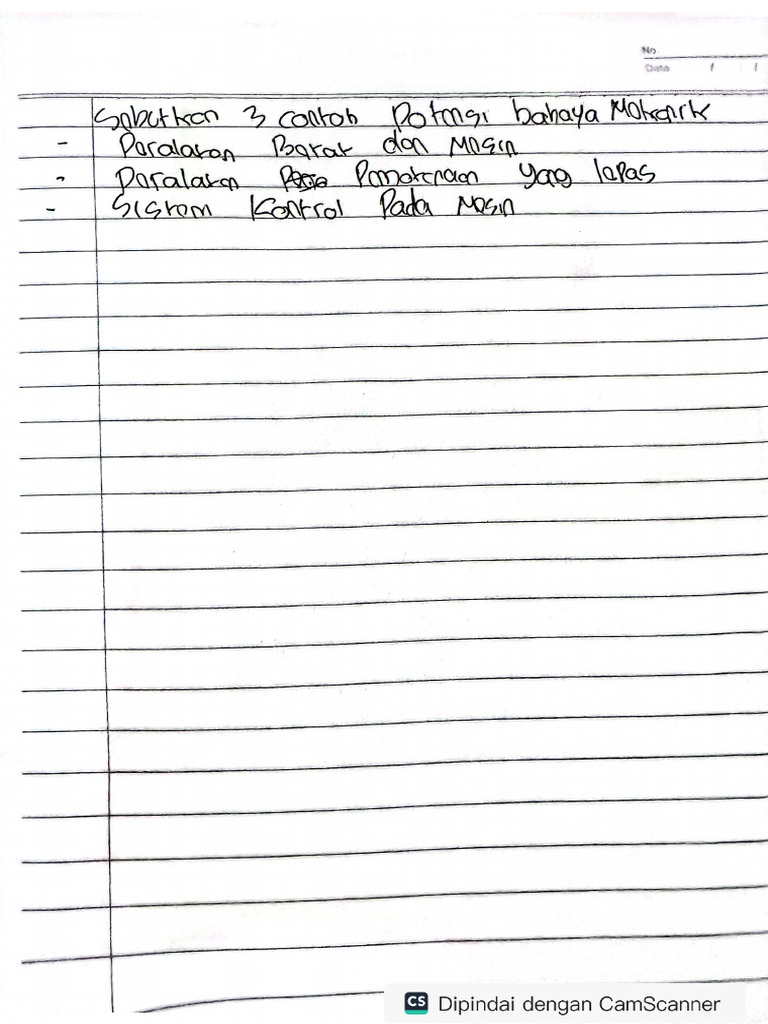 No
Date / /
Sebutkan 3 contoh Potensi bahaya Mekanik
- Peralatan Berat dan Mesin
- Peralatan Pemotongan yang lepas
- Sistem Kontrol Pada Mesin
CS Dipindai dengan CamScanner